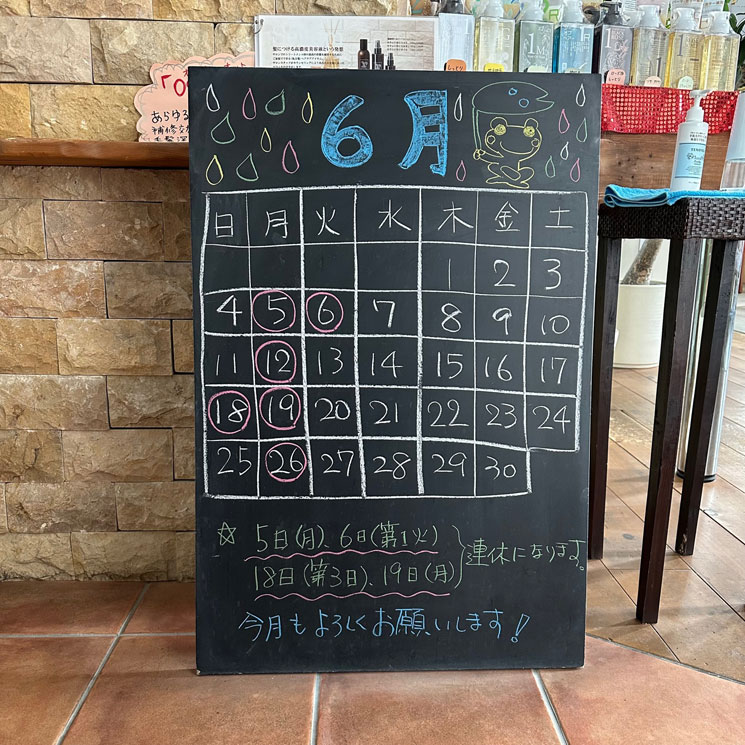 髪につける高濃度美容液という発想
あらゆる
6月
日 月 火 水 木 金 土
1 2 3
4 5 6 7 8 9 10
11 12 13 14 15 16 17
18 19 20 21 22 23 24
25 26 27 28 29 30
☆ 5日(月)、6日(第1火)
18日(第3日)、19日(月)
連休になります。
今月もよろしくお願いします!